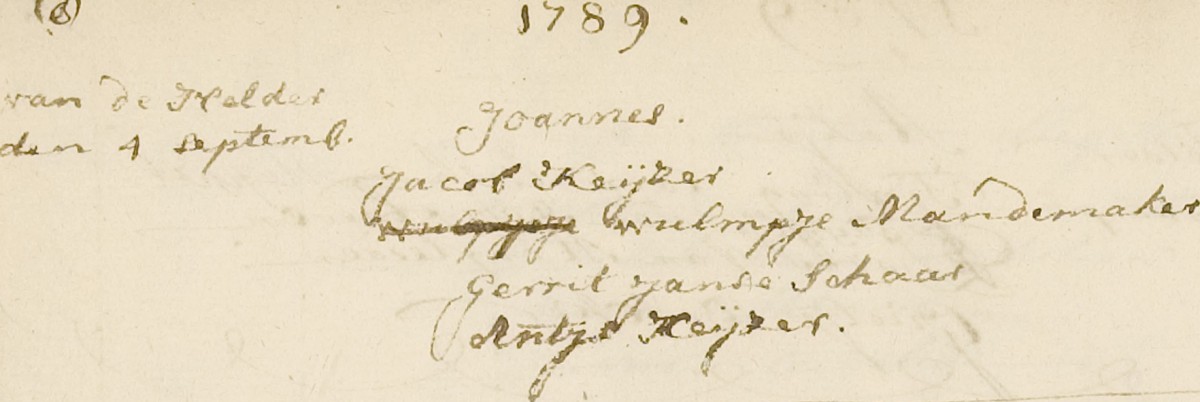 (8)
1789.
van de Helder
den 4 septemb.
Joannes.
Jacob Keijzer
wulmpje Mandemaker
Gerrit Janse Schaar
Antje Keijzer.